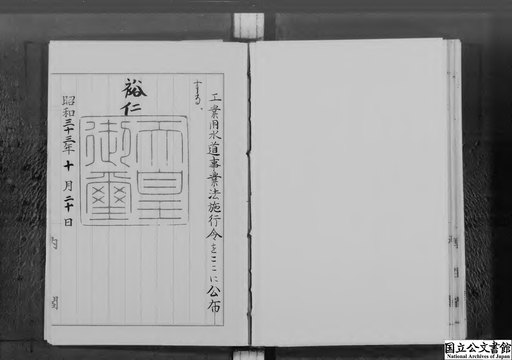 工業用水道事業法施行令をここに公布
する。
裕仁
天皇
御璽
昭和三十三年十月二十日
内閣
国立公文書館
National Archives of Japan